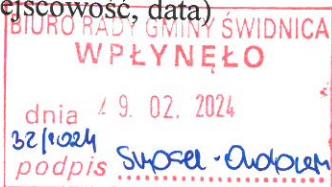 ejscowość, data)
BIURO RADY GMINY ŚWIDNICA
WPŁYNĘŁO
dnia 9. 02. 2024
32/2024
podpis